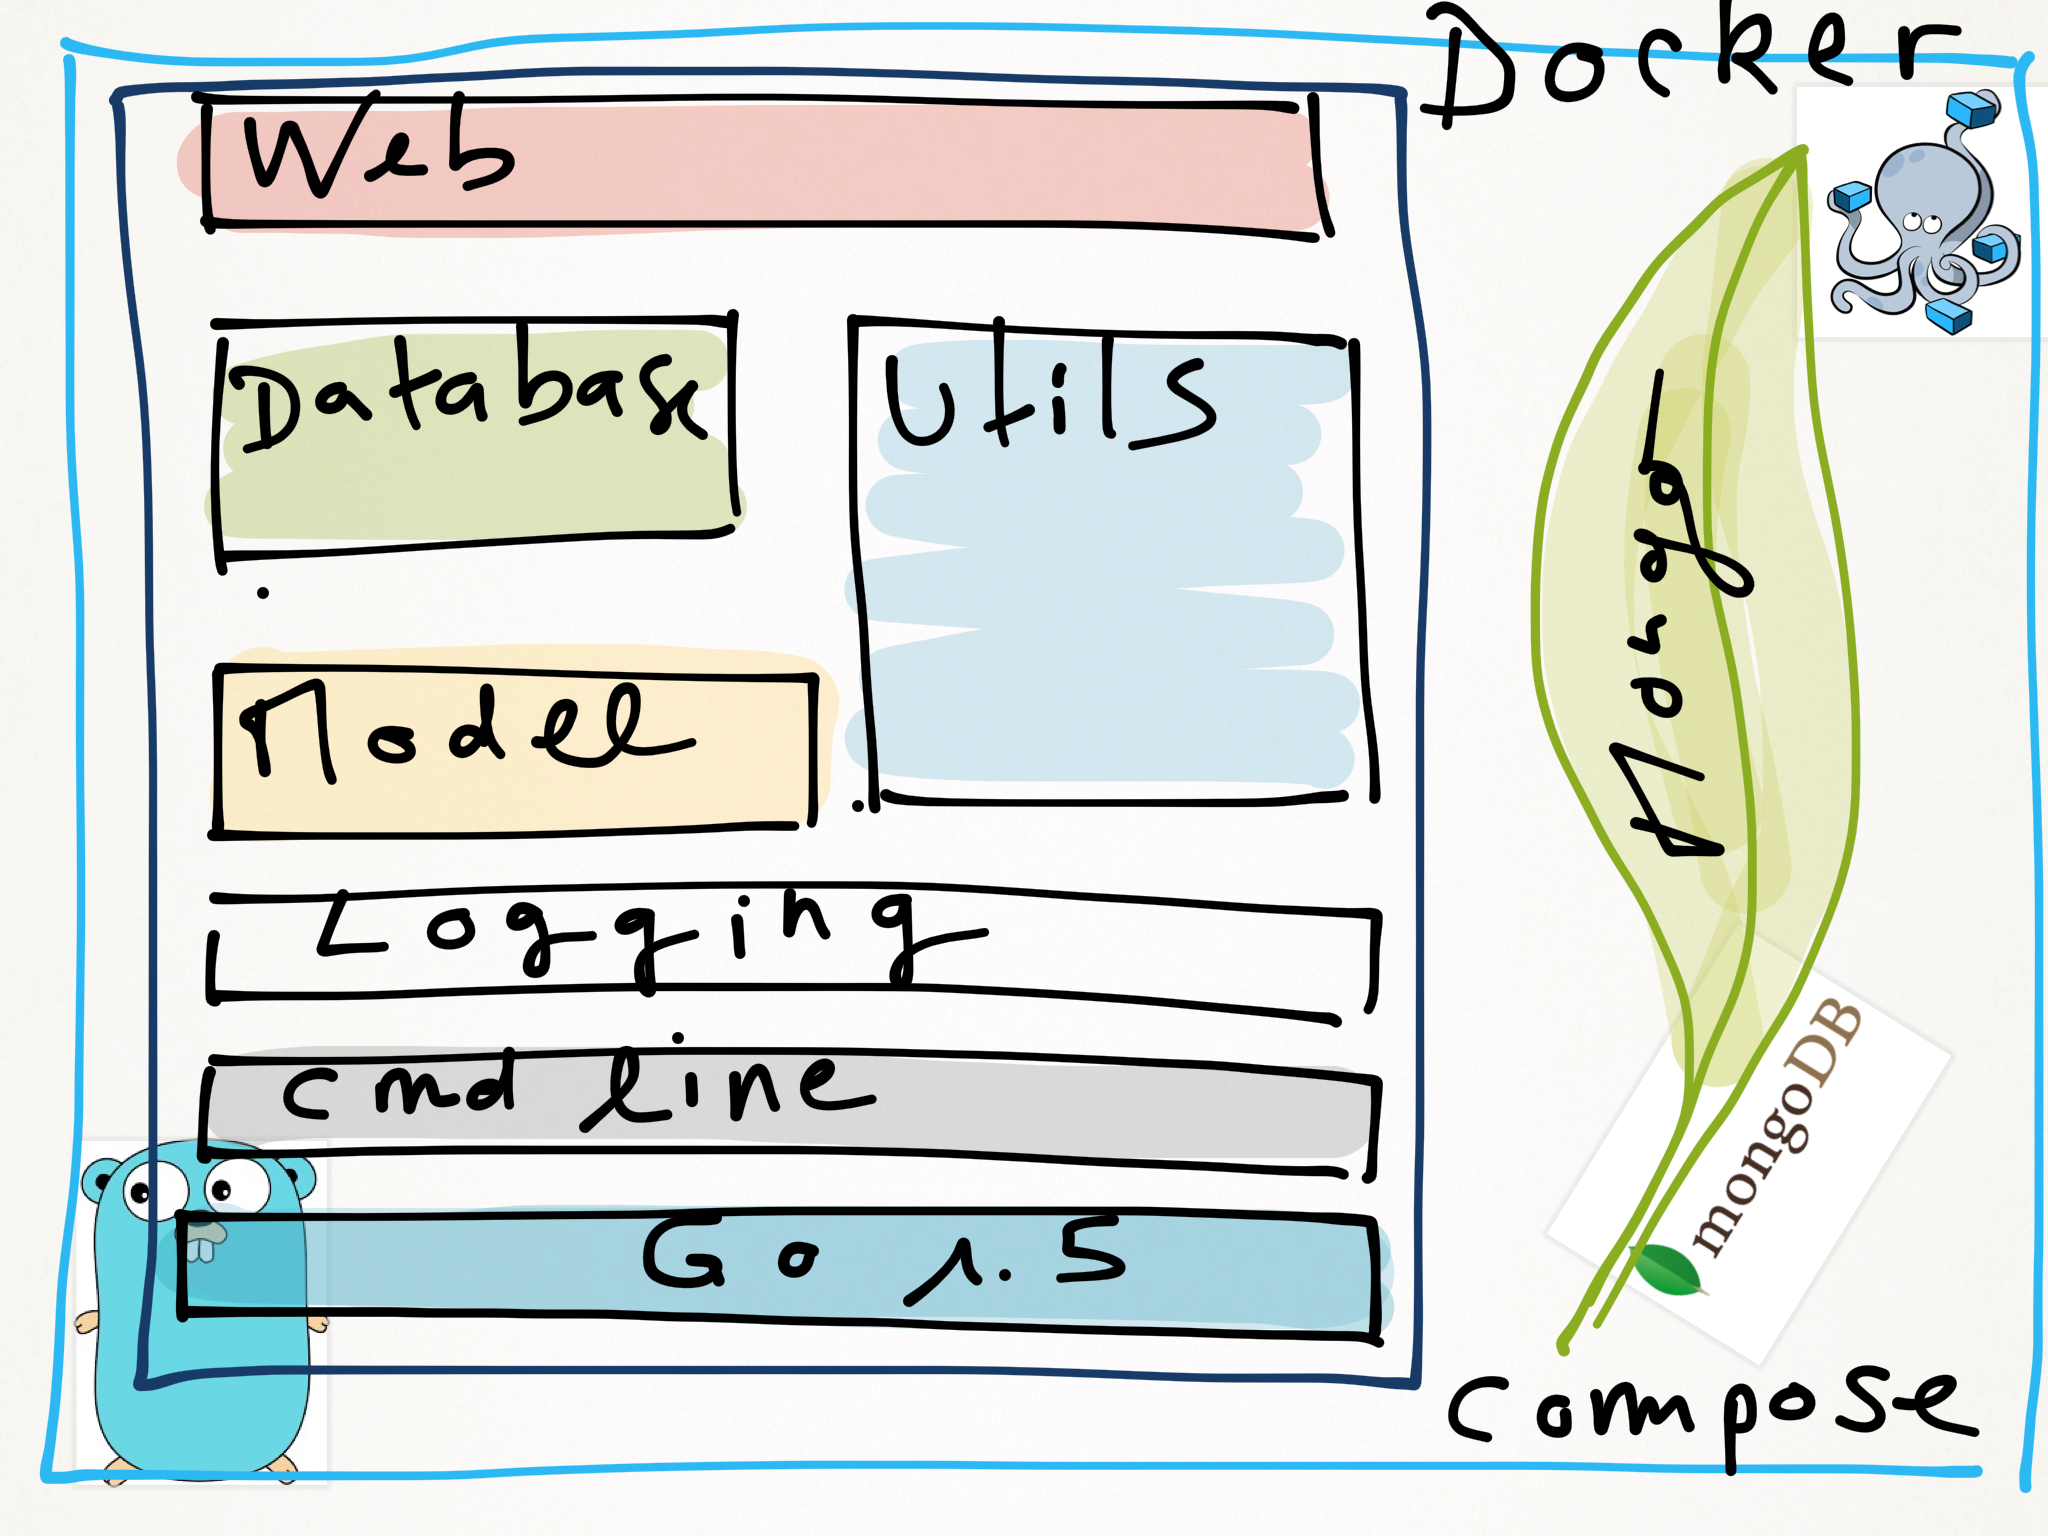 Docker
Web
Database
Utils
Model
Logging
cmd line
Go 1.5
Mongo
mongoDB
compose